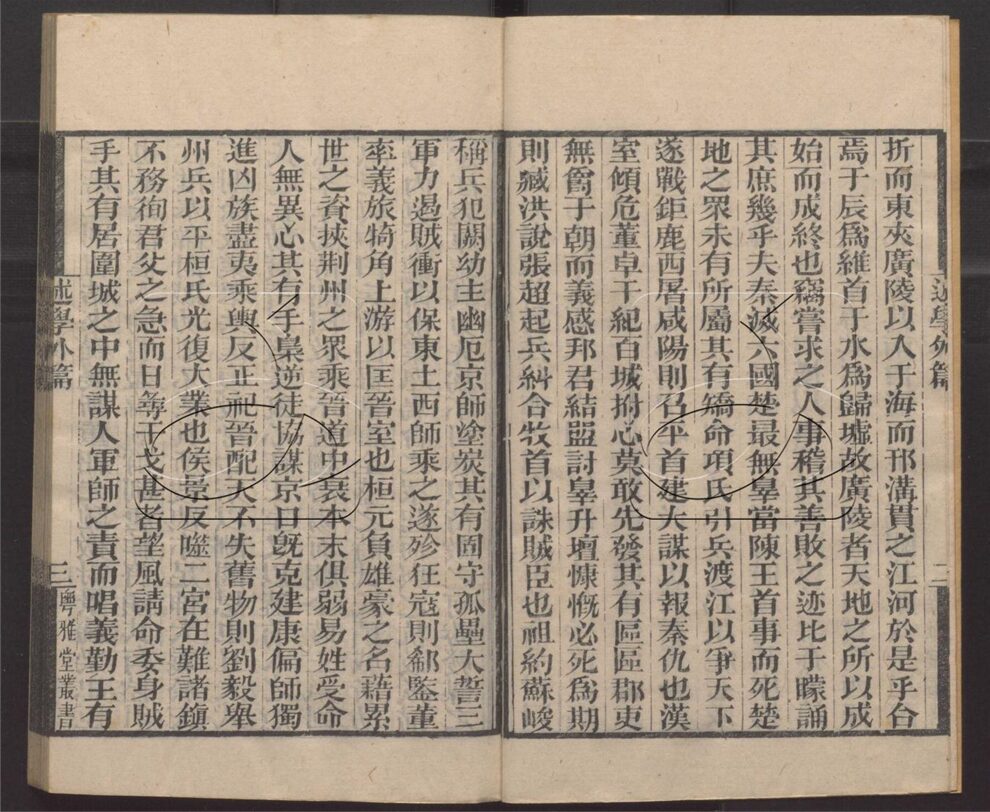 述學外篇
二
折而東夾廣陵以入于海而邗溝貫之江河於是乎合
焉于辰爲維首于水爲歸墟故廣陵者天地之所以成
始而成終也竊嘗求之人事稽其善敗之迹比于矇誦
其庶幾乎夫秦滅六國楚最無辠當陳王首事而死楚
地之眾未有所屬其有矯命項氏引兵渡江以爭天下
遂戰鉅鹿西屠咸陽則召平首建大謀以報秦仇也漢
室傾危董卓干紀百城拊心莫敢先發其有區區郡吏
無位于朝而義感邦君結盟討辠升壇慷慨必死爲期
則臧洪說張超起兵糾合牧首以誅賊臣也祖約蘇峻
稱兵犯闕幼主幽厄京師塗炭其有固守孤壘大誓三
軍力遏賊衝以保東土西師乘之遂殄狂寇則郗鑒董
率義旅犄角上游以匡晉室也桓元負雄豪之名藉累
世之資挾荆州之眾乘晉道中衰本末俱弱易姓受命
人無異心其有手梟逆徒協謀京口旣克建康偏師獨
進凶族盡夷乘輿反正祀晉配天不失舊物則劉毅舉
州兵以平桓氏光復大業也侯景反噬二宮在難諸鎮
不務徇君父之急而日尋干戈甚者望風請命委身賊
手其有居圍城之中無謀人軍師之責而唱義勤王有
述學外篇
三
粵雅堂叢書